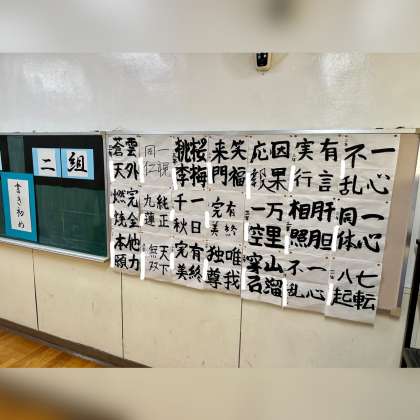 二組
書き初め
一心不乱
一心同体
七転八起
有言実行
肝胆相照
一心不乱
因果応報
万里一空
山溜穿石
笑福来門
有終完美
唯我独尊
桜梅桃李
一日千秋
一視同仁
純正九蓮
天下無双
雲外蒼天
完全燃焼
他力本願